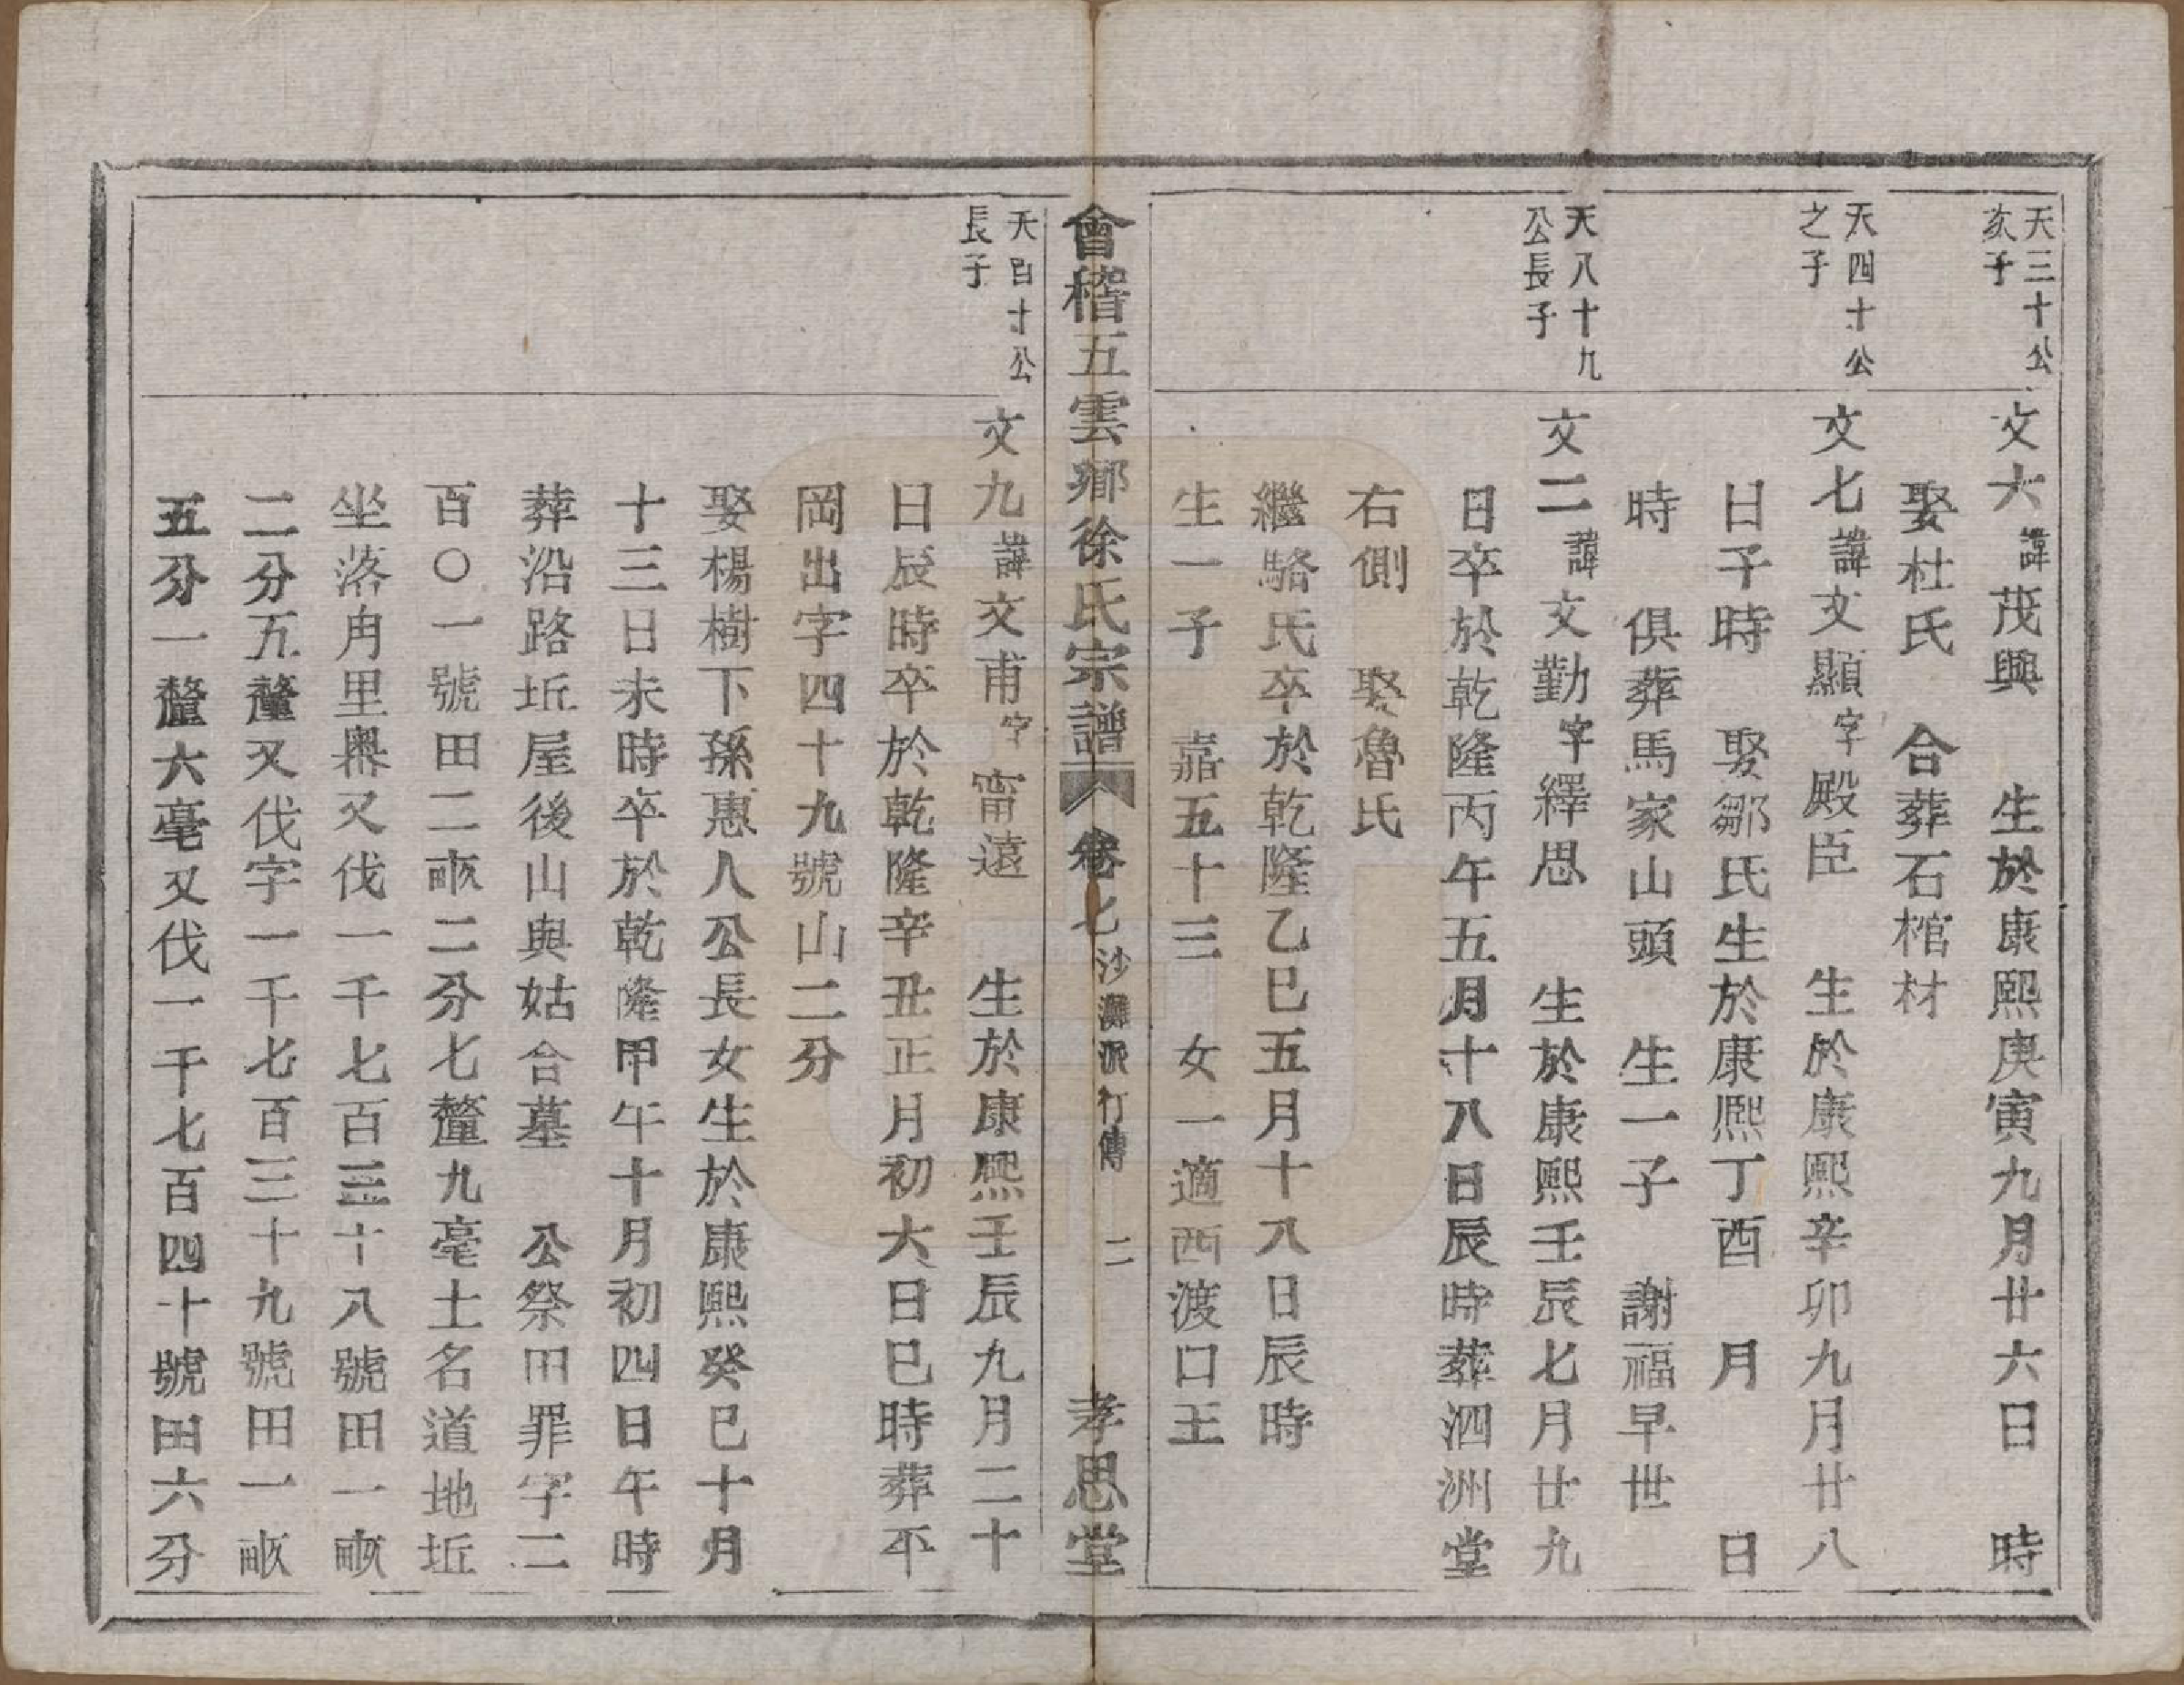 天三十公
次子
文六諱茂興　生於康熙庚寅九月廿六日　時
娶杜氏　合葬石棺材
天四十公
之子
文七諱文顯字殿臣　生於康熙辛卯九月廿八
日子時　娶鄒氏生於康熙丁酉　月　　日
時　俱葬馬家山頭　生一子　謝福早世
天八十九
公長子
文二諱文勤字繹思　生於康熙壬辰七月廿九
日卒於乾隆丙午五月十八日辰時葬泗洲堂
右側　娶魯氏
繼駱氏卒於乾隆乙巳五月十八日辰時
生一子　嘉五十三　女一適西渡口王
會稽五雲鄉徐氏宗譜　卷七　沙灘派行傳　二　孝思堂
天百十公
長子
文九諱文甫字甯遠　生於康熙壬辰九月二十
日辰時卒於乾隆辛丑正月初六日巳時葬平
岡出字四十九號山二分
娶楊樹下孫惠人公長女生於康熙癸巳十月
十三日未時卒於乾隆甲午十月初四日午時
葬沿路坵屋後山與姑合墓　公祭田罪字二
百〇一號田二畝二分七釐九毫土名道地坵
坐落冉里奧又伐一千七百三十八號田一畝
二分五釐又伐字一千七百三十九號田一畝
五分一釐六毫又伐一千七百四十號田六分